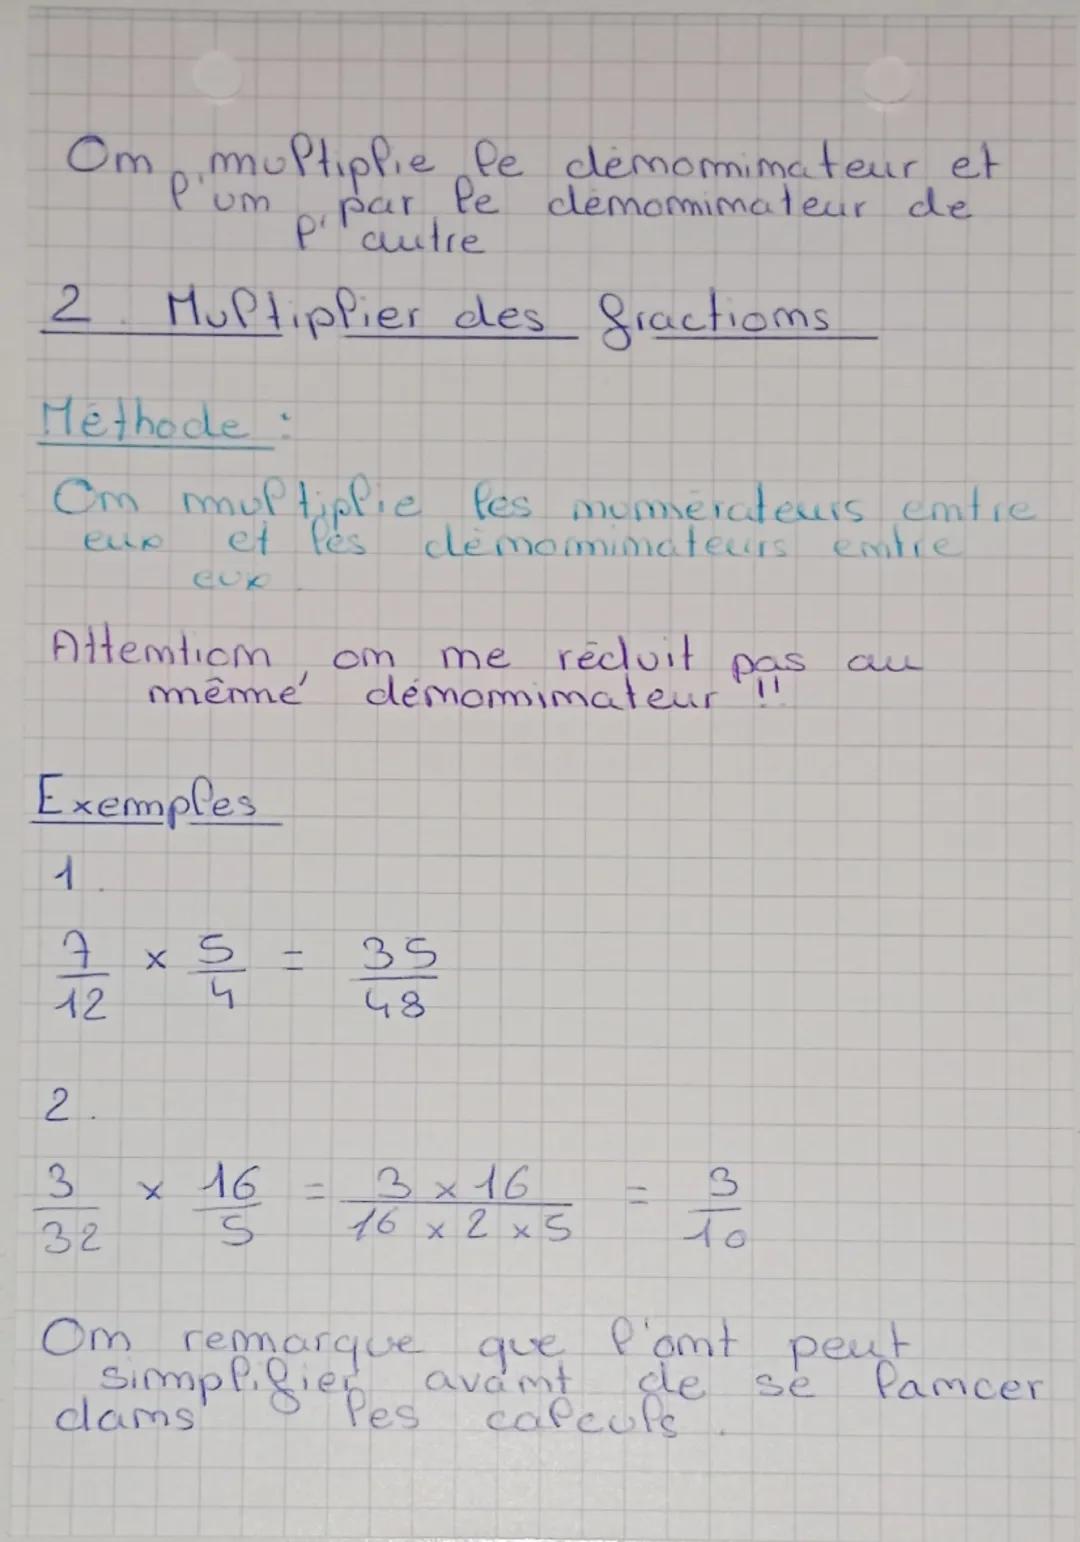 On multiplie le dénominateur et
l'un par le dénominateur de
l'autre
2. Multiplier des fractions
Méthode :
On multiplie les numérateurs entre
eux et les dénominateurs entre
eux.
Attention, on ne réduit pas au
même dénominateur !!
Exemples
1.
7/12 × 5/4 = 35/48
2.
3/32 × 16/5 = 3 × 16/16 × 2 × 5 = 3/10
On remarque que l'ont peut
simplifier avant de se lancer
dans les calculs.